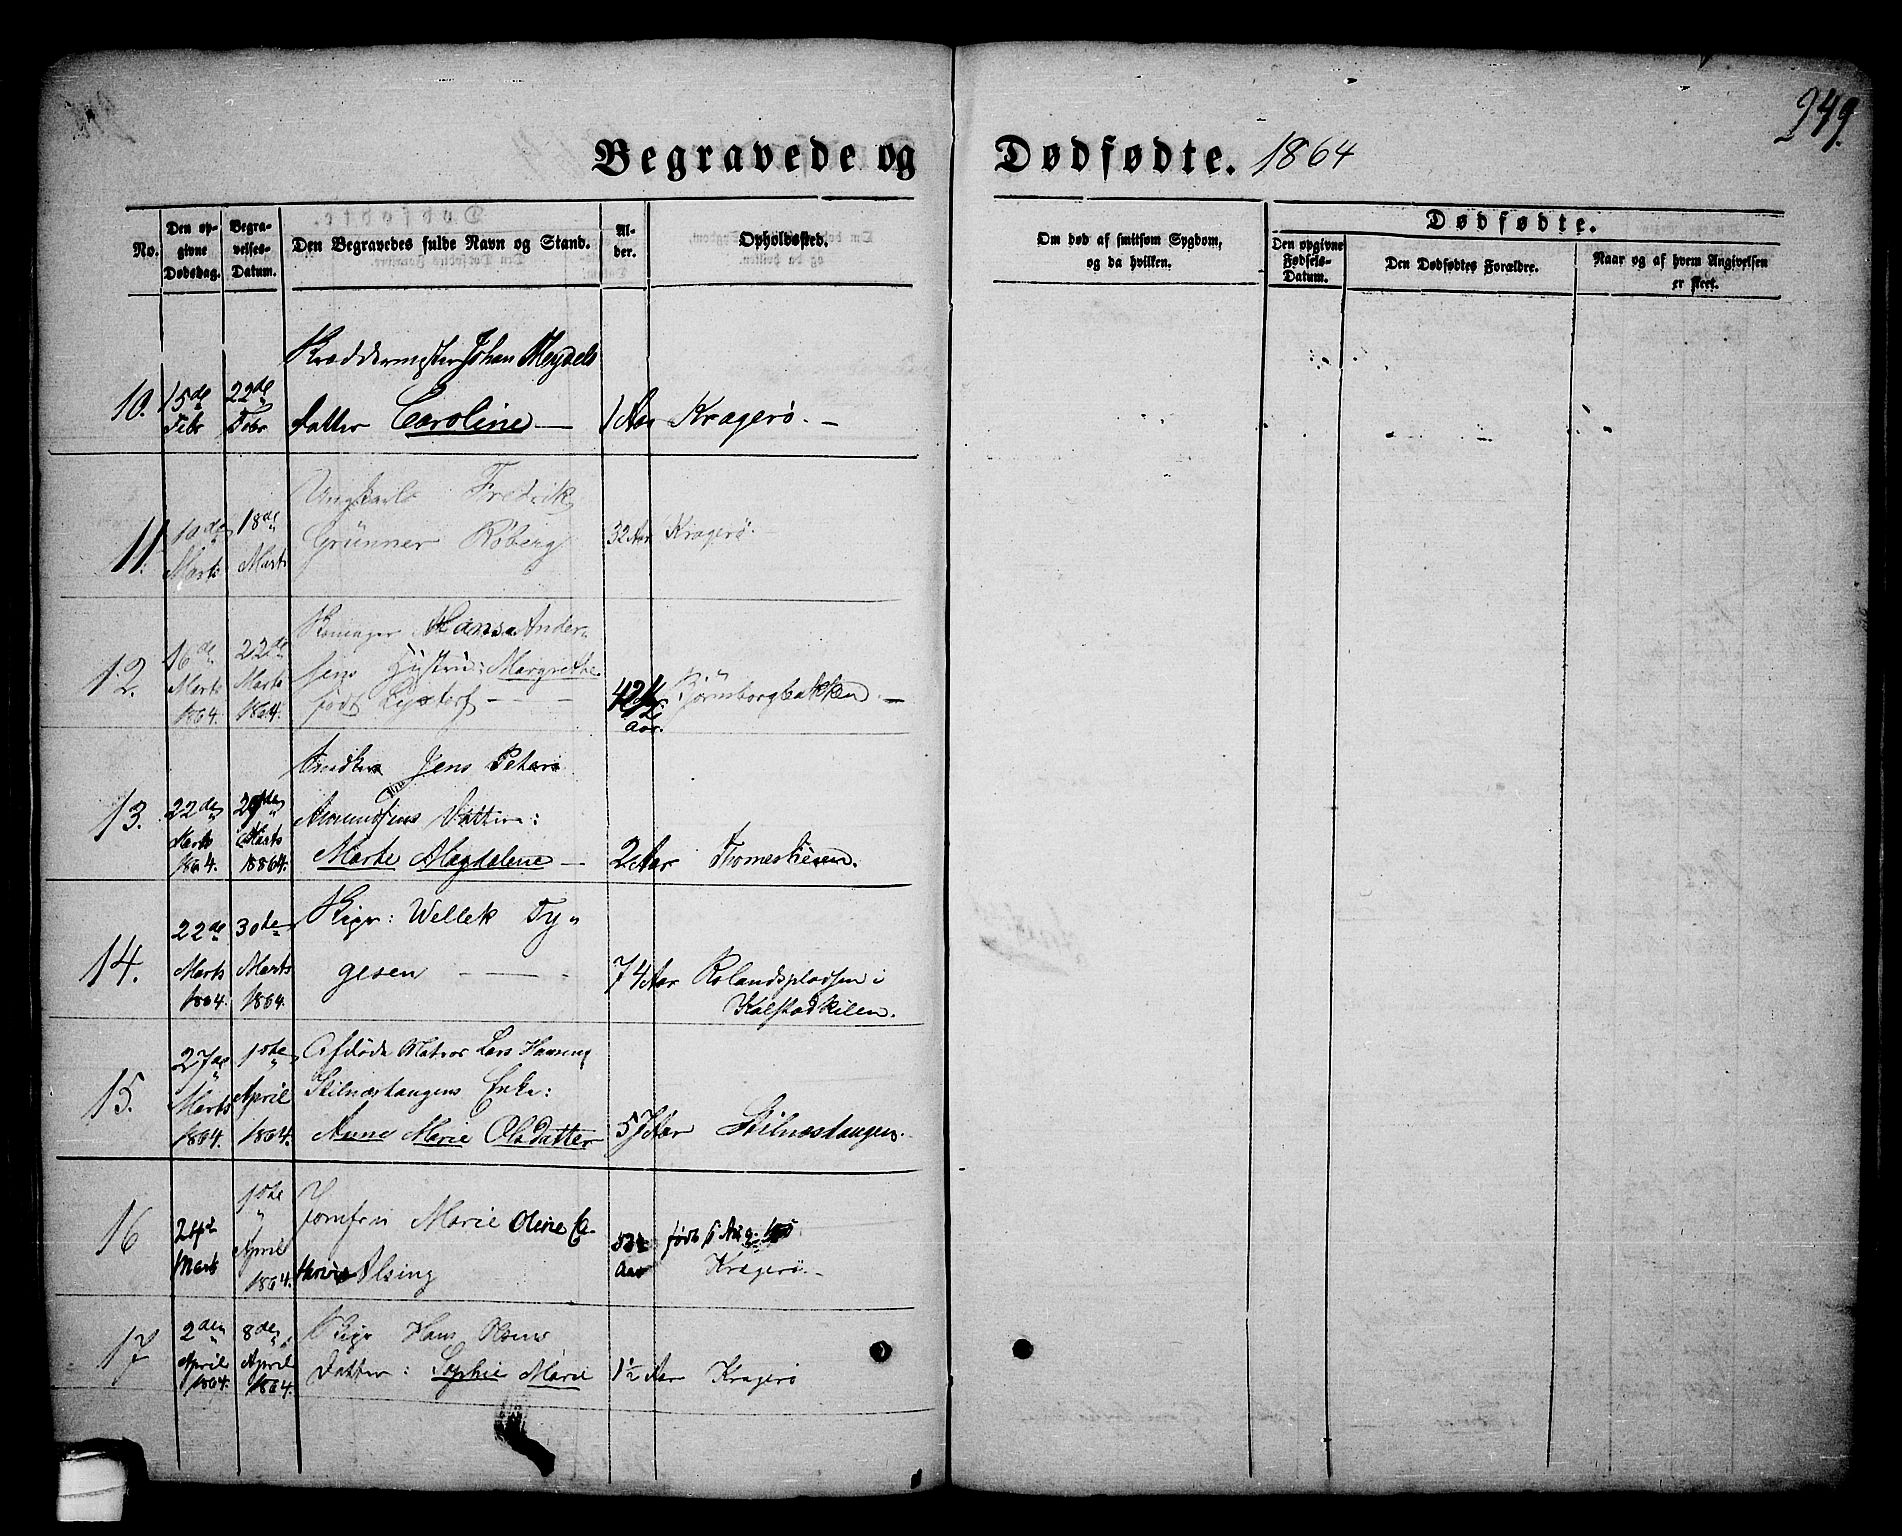 249.
Begravede og Dødfødte. 1864
No.
Den opgivne Dødsdag.
Begravelses-Datum.
Den Begravedes fulde Navn og Stand.
Alder.
Opholdssted.
Om død af smitsom Sygdom, og da hvilken.
Dødfødte.
Den opgivne Fødsels-Datum.
Den Dødfødtes Forældre.
Naar og af hvem Angivelsen er skeet.
Johan Heydels
10. 15de Febr 22de Febr Datter Caroline — 1 Aar Kragerø. —
Ungkarl Fredrik
11. 10de Marts 18de Marts Grünner Röberg 32 Aar Kragerø.
Hans Ander-
12. 16de Marts 1864. 22de Marts 1864. sens Hustru: Margrethe
født 42 1/2 Aar. Bjørnsborgbakken. —
Jens Peter
13. 22den Marts 1864. Marts 1864. Amundsens Datter:
Marte Magdalene — 2 Aar
14. 22de Marts 1864. 30te Marts 1864. Wellek Ty-
gesen 74 Aar Rolandspladsen i
Kalstadkilen.
15. 27de Marts 1864. 1ste April 1864. Afdøde Matros Lars
Stilnæstangens Enke:
Anne Marie Olsdatter 57 Aar Stilnæstangen.
16 24de Marts 1ste April 1864. Jomfru Marie Oline Ca-
Alsing Aar født Aug.
Kragerø. —
17 2den April 1864. 8de April 1864. Hans Olsens
Datter: Sophie Marie 1½ Aar Kragerø